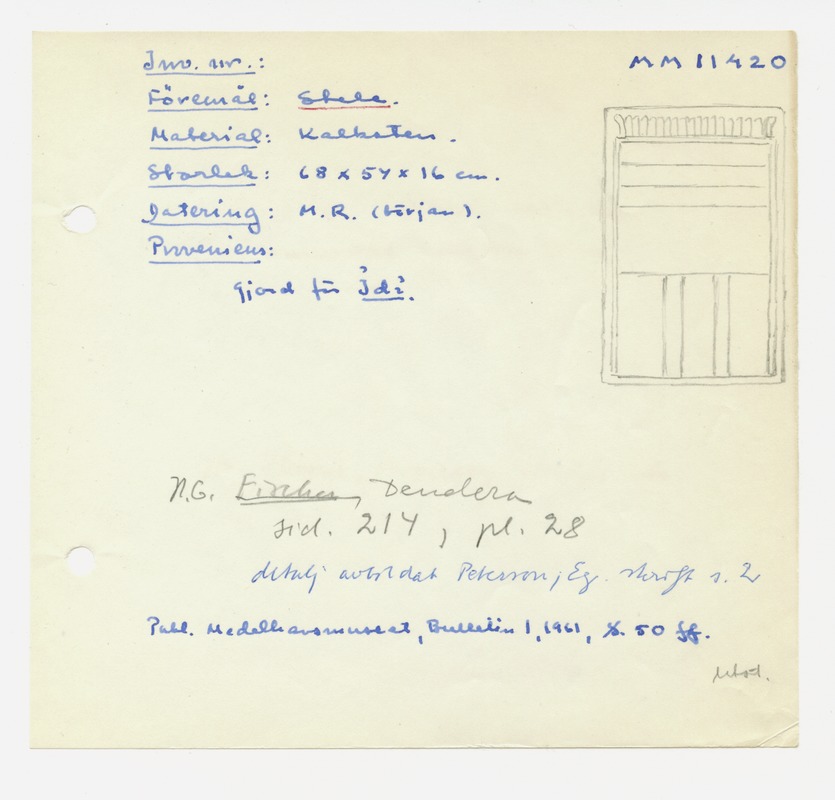 Inv. nr.:
MM 11420
Föremål: Stele.
Material: Kalksten.
Storlek: 68 x 54 x 16 cm.
Datering: M.R. (början).
Proveniens:
Gjord för
H.G. Fischer, Dendera
sid. 214, pl. 28
detalj avbildat Peterson, Eg. skrift s. 2
Publ. Medelhavsmuseet, Bulletin 1, 1961, s. 50 ff.